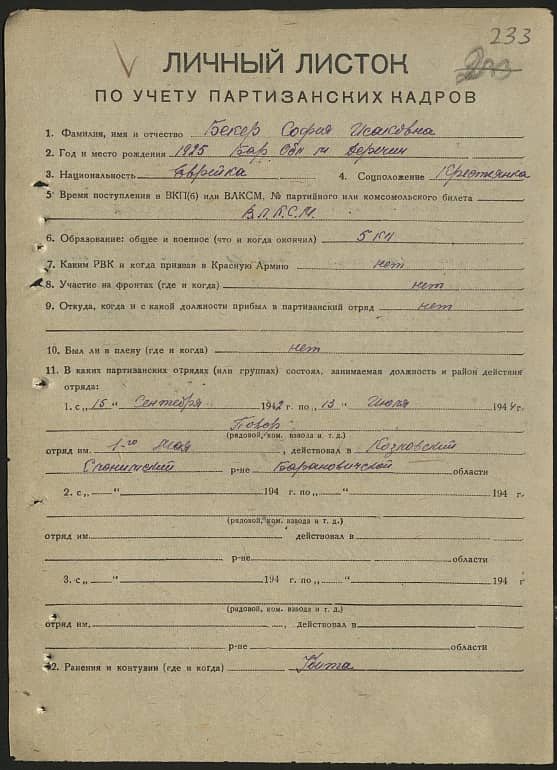 233
ЛИЧНЫЙ ЛИСТОК
ПО УЧЕТУ ПАРТИЗАНСКИХ КАДРОВ
1. Фамилия, имя и отчество Бекер София Исаковна
2. Год и место рождения 1925 Бар. Обл. м. Деречин
3. Национальность Еврейка 4. Соцположение Крестьянка
5. Время поступления в ВКП(б) или ВЛКСМ, № партийного или комсомольского билета
В.Л.К.С.М.
6. Образование: общее и военное (что и когда окончил) 5 кл
7. Каким РВК и когда призван в Красную Армию нет
8. Участие на фронтах (где и когда) нет
9. Откуда, когда и с какой должности прибыл в партизанский отряд нет
10. Был ли в плену (где и когда) нет
11. В каких партизанских отрядах (или группах) состоял, занимаемая должность и район действия
отряда:
1. с „15“ Сентября 1942 г. по „13“ Июля 1944 г.
Повар
(рядовой, ком. взвода и т. д.)
отряд им. 1-го Мая, действовал в Козловский
Слонимский р-не Барановичской области
2. с „ “ 194 г. по „ “ 194 г.
(рядовой, ком. взвода и т. д.)
отряд им. действовал в
р-не области
3. с „ “ 194 г. по „ “ 194 г
(рядовой, ком. взвода и т. д.)
отряд им. , действовал в
р-не области
12. Ранения и контузии (где и когда)